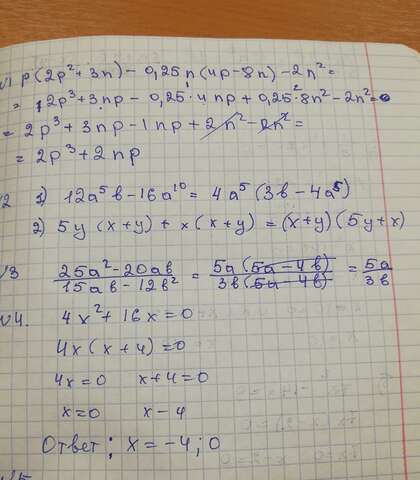 √1 p(2p²+3n) − 0,25n(4p−8n) −2n²=
= 2p³+3np − 0,25·4np + 0,25·8n² −2n²=
= 2p³+3np −1np + 2n² −2n²=
= 2p³+2np
√2 1) 12a⁵b −16a¹⁰ = 4a⁵(3b −4a⁵)
2) 5y(x+y) + x(x+y) = (x+y)(5y+x)
√3 25a²−20ab / 15ab−12b² = 5a(5a−4b) / 3b(5a−4b) = 5a / 3b
√4. 4x²+16x=0
4x(x+4)=0
4x=0 x+4=0
x=0 x−4
Ответ: x=−4; 0